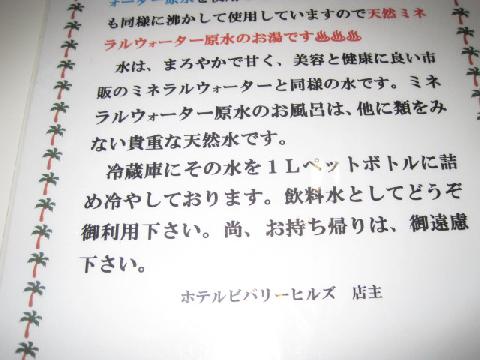 も同様に沸かして使用していますので天然ミネ
ラルウォーター原水のお湯です♨♨♨
水は、まろやかで甘く、美容と健康に良い市
販のミネラルウォーターと同様の水です。ミネ
ラルウォーター原水のお風呂は、他に類をみ
ない貴重な天然水です。
冷蔵庫にその水を１Ｌペットボトルに詰
め冷やしております。飲料水としてどうぞ
御利用下さい。尚、お持ち帰りは、御遠慮
下さい。
ホテルビバリーヒルズ　店主